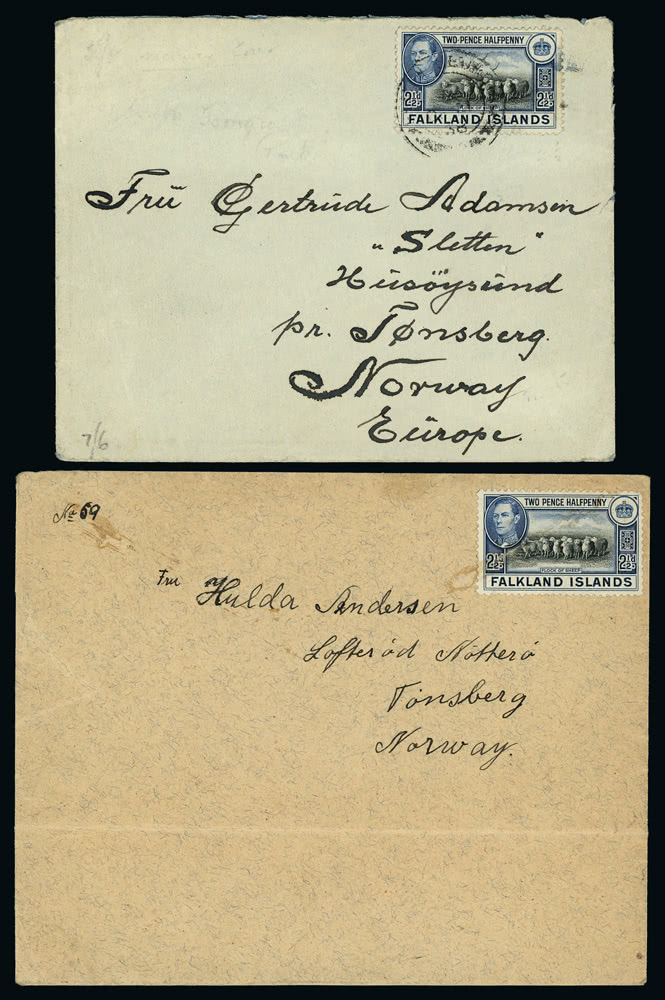 TWO-PENCE HALFPENNY
2½D 2½D
FALKLAND ISLANDS
Frü Gertrüde Adamsen
"Sletten"
Hüsöysünd
pr. Tønsberg.
Norway
Eürope.
7/6
No 59
TWO PENCE HALFPENNY
2½D 2½D
FLOCK OF SHEEP
FALKLAND ISLANDS
Fru Hulda Andersen
Lofteröd Nötterö
Tönsberg
Norway.